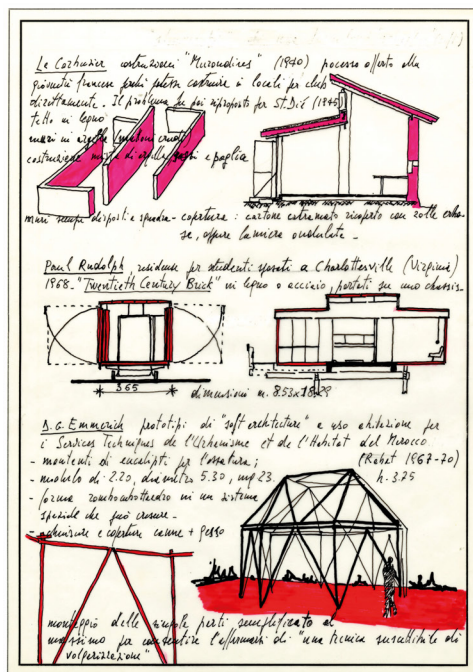 Le Corbusier costruzioni "Murondines" (1940) processo offerto alla
gioventù francese perché potesse costruire i locali per club
direttamente - Il problema fu poi riproposto per St. Dié (1945)
tetto in legno
muri in argilla (mattoni crudi)
costruzione mista di argilla, sassi e paglia
muri sempre disposti a squadra - copertura: cartone catramato ricoperto con zolle erbo-
se, oppure lamiera ondulata -
Paul Rudolph, residenze per studenti sposati a Charlottesville (Virginia)
1968 - "Twentieth Century Brick" in legno o acciaio, portati su uno chassis -
365
dimensioni m. 8.53x18.29
D.G. Emmerich prototipi di "soft architecture" a uso abitazione per
i Services Techniques de l'Urbanisme et de l'Habitat del Marocco
- montanti di eucalipti per l'ossatura; (Rabat 1967-70)
- modulo di 2.20, diametro 5.30, mq 23. h. 3.75
- forma rombocubottaedro in un sistema
spaziale che può crescere -
- chiusure e coperture canne + gesso
montaggio delle singole parti semplificato al
massimo per consentire l'affermarsi di "una tecnica suscettibile di
volgarizzazione"